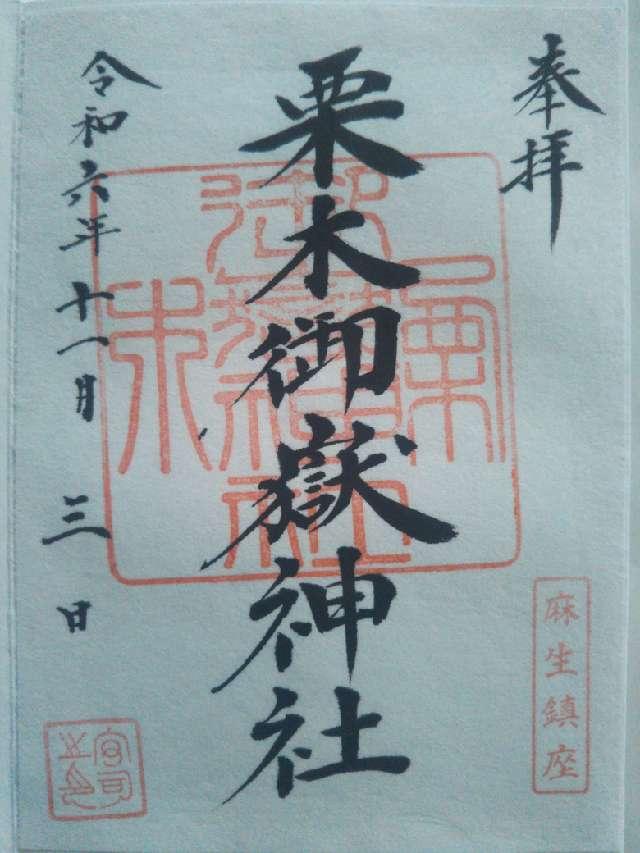 奉拝
栗木御嶽神社
令和六年十一月三日
麻生鎮座
宮司之印